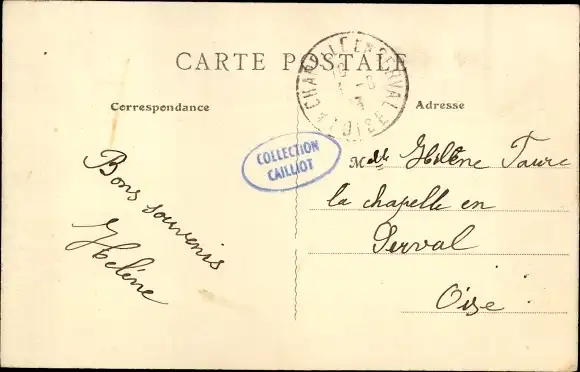 CARTE POSTALE
Correspondance
Adresse
COLLECTION
CAILLIOT
Bons souvenis
Hélène
Melle Hélène Faure
la chapelle en
Serval
Oise